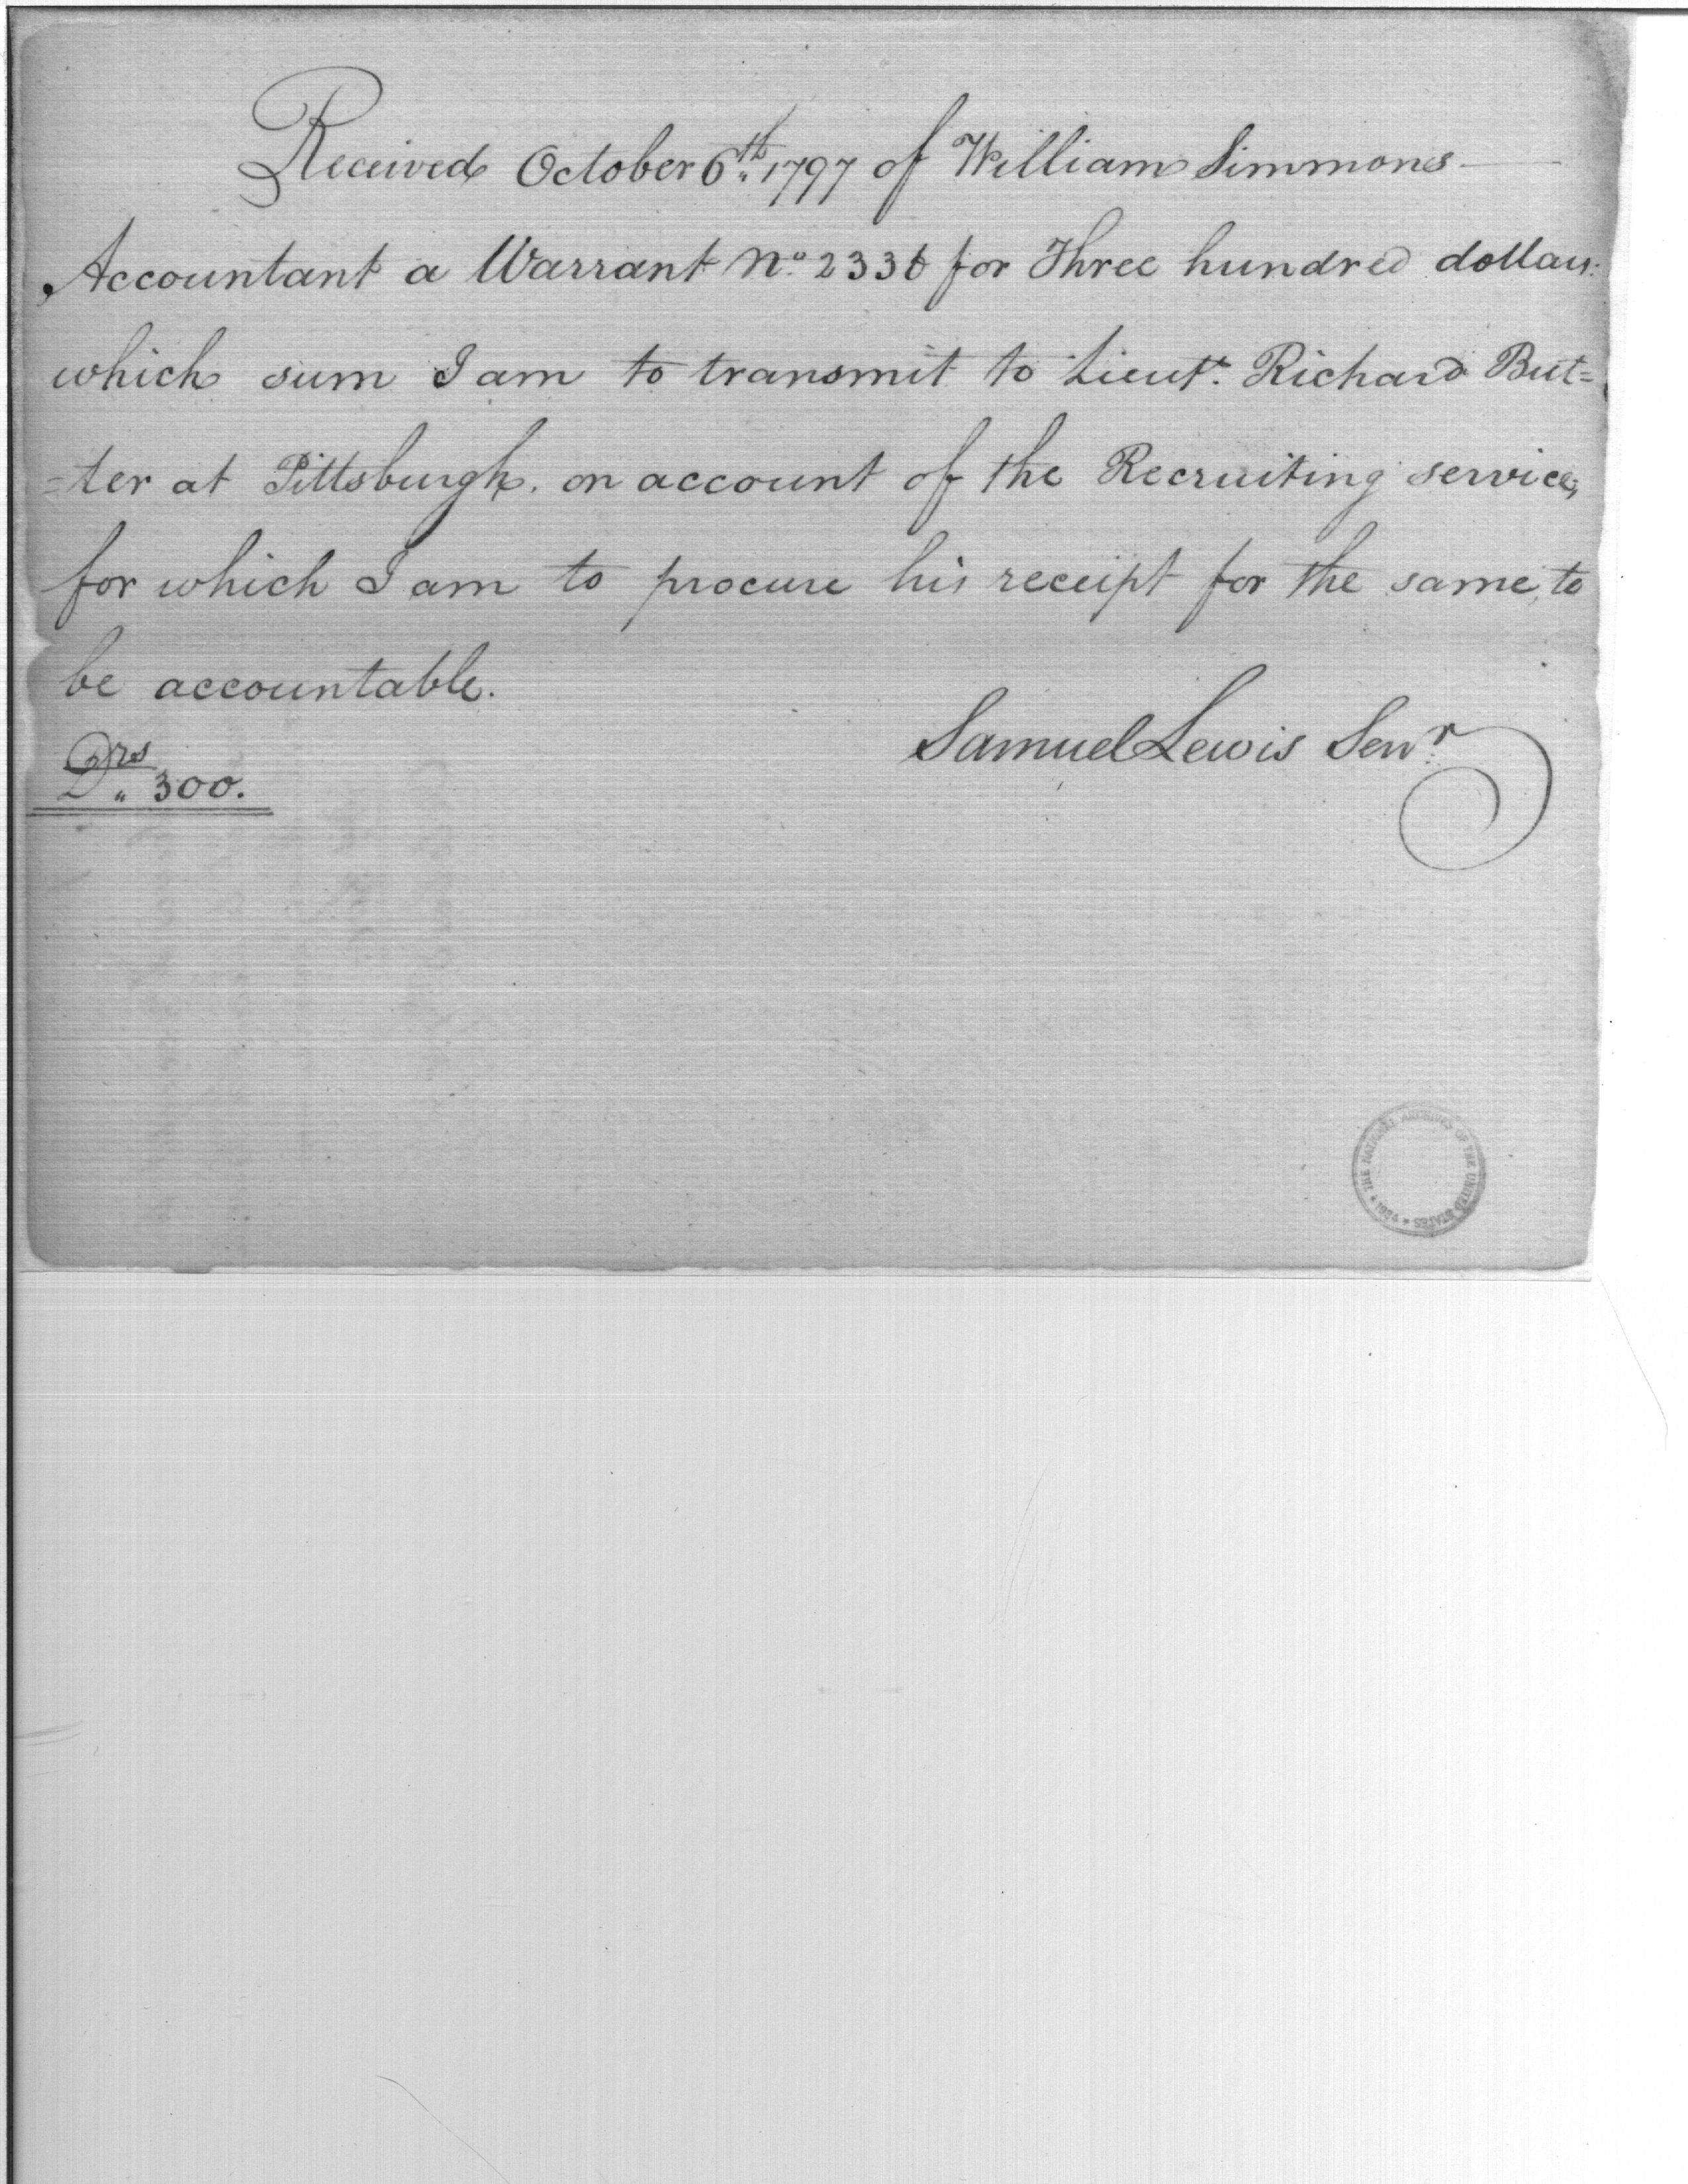 Received October 6th 1797 of William Simmons
Accountant a Warrant No 2336 for Three hundred dollars
which sum I am to transmit to Lieut. Richard But=
=ter at Pittsburgh. on account of the Recruiting service,
for which I am to procure his receipt for the same, to
be accountable.
Samuel Lewis Senr
Drs 300.
THE NATIONAL ARCHIVES OF THE UNITED STATES * 1934 *